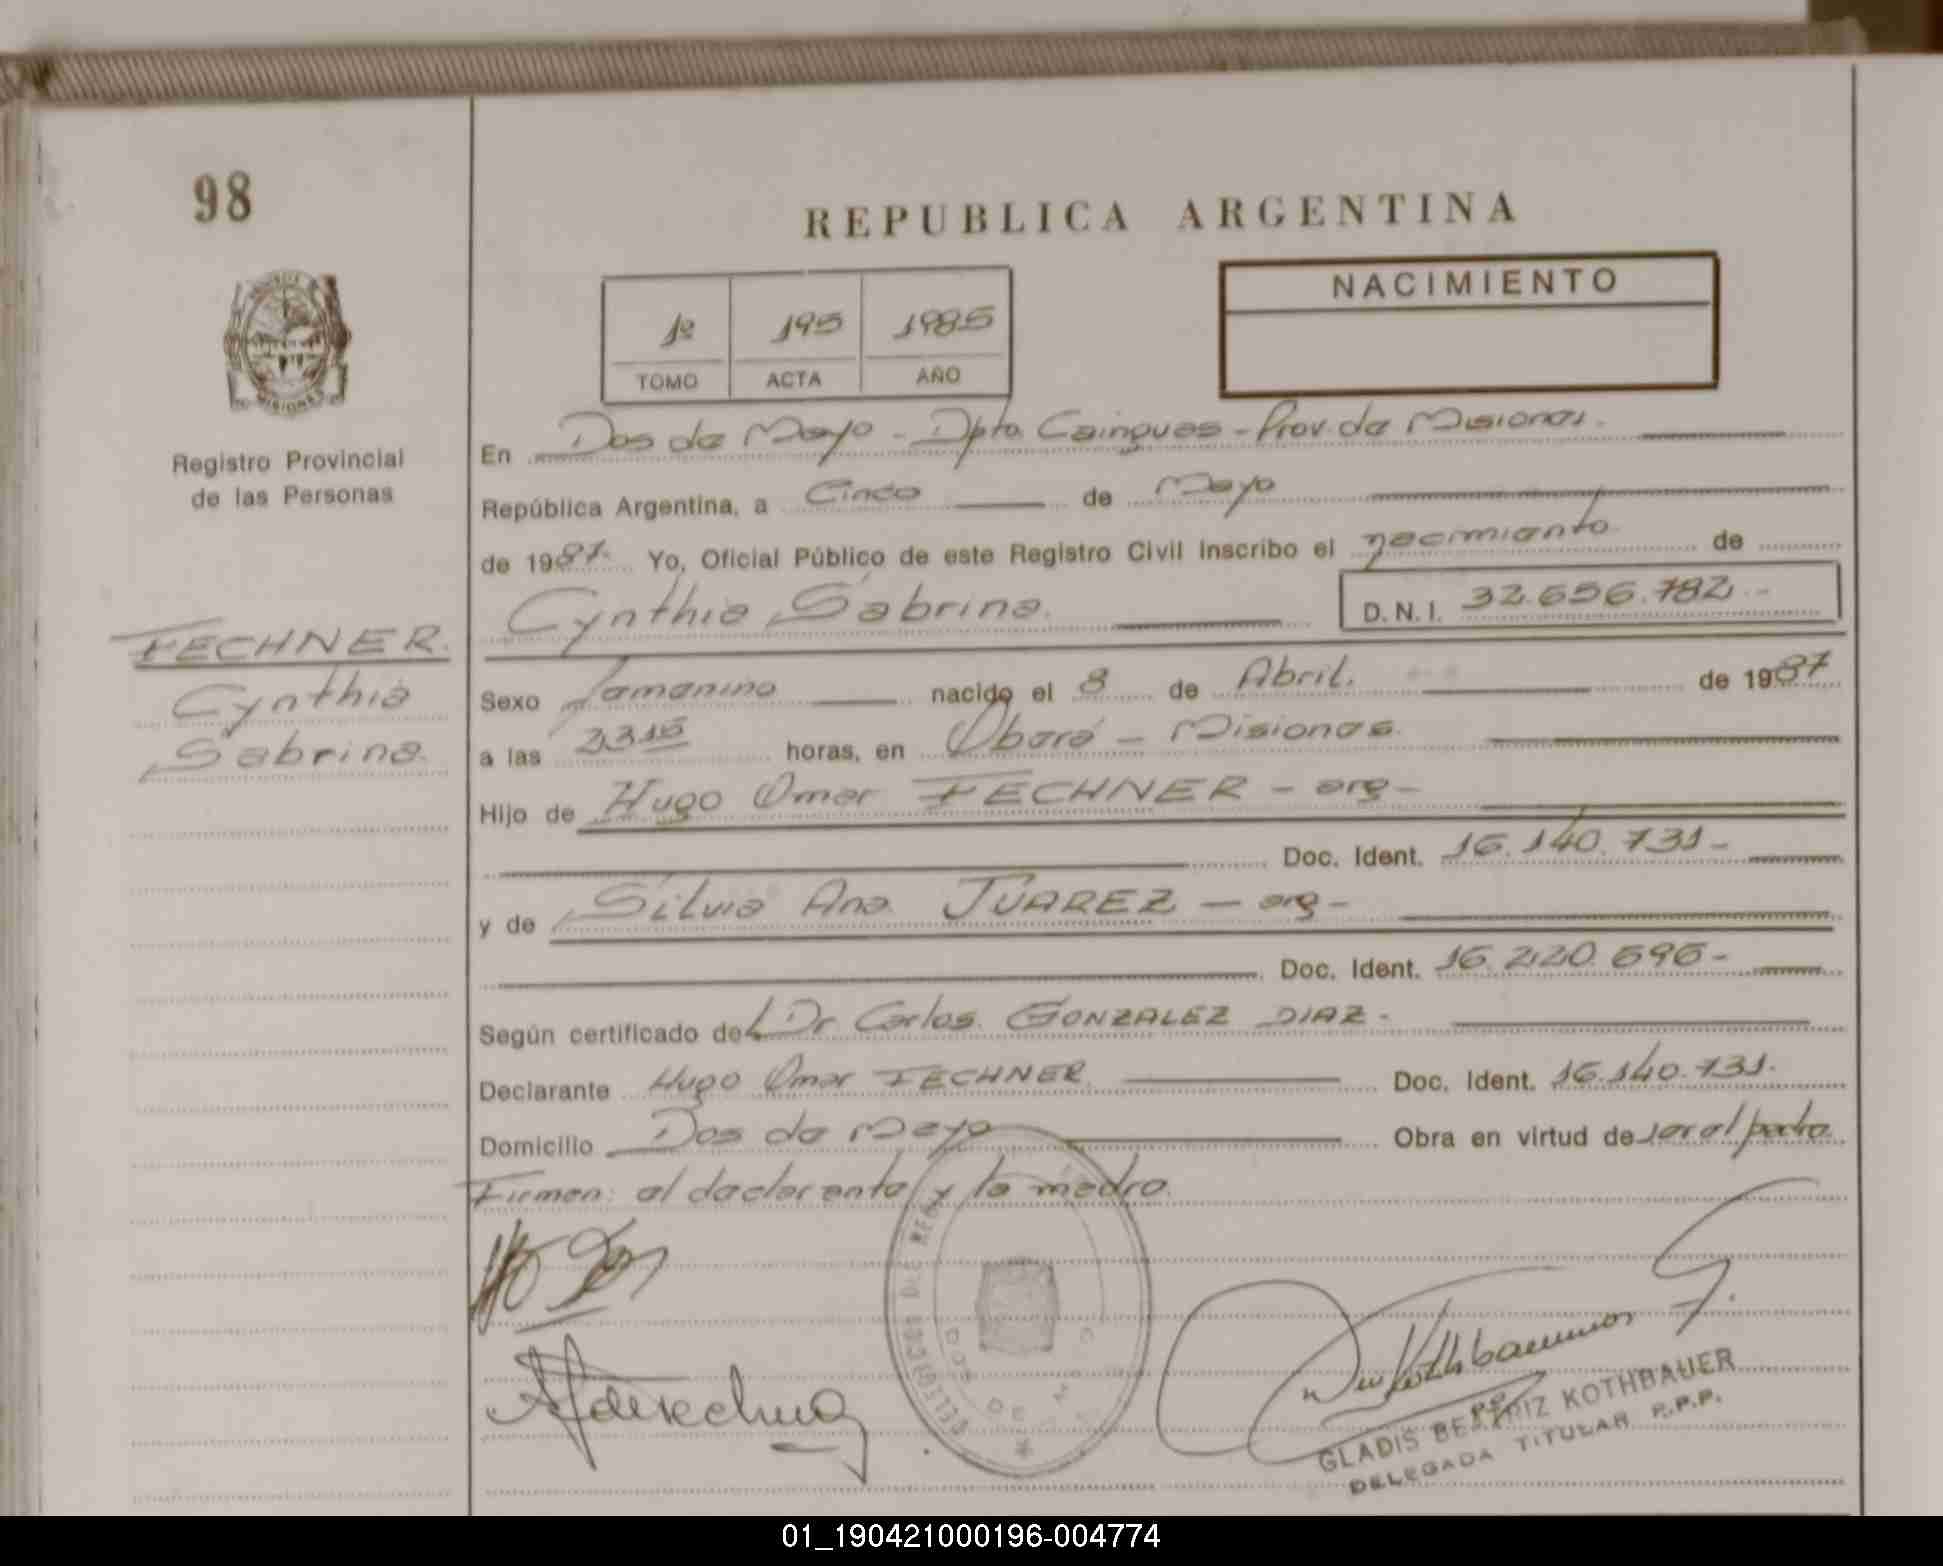 98
REPUBLICA ARGENTINA
NACIMIENTO
1º 195 1985
TOMO ACTA AÑO
MISIONES
Registro Provincial
de las Personas
En Dos de Mayo - Dpto. Cainguas - Prov. de Misiones.
República Argentina, a Cinco de Mayo
de 1987. Yo, Oficial Público de este Registro Civil inscribo el nacimiento de
Cynthia Sabrina. D.N.I. 32.656.782.-
FECHNER.
Cynthia
Sabrina.
Sexo Femenino nacido el 8 de Abril. de 1987
a las 2315 horas, en Oberá - Misiones.
Hijo de Hugo Omar FECHNER - arg -
Doc. Ident. 16.140.731-
y de Silvia Ana JUAREZ - arg -
Doc. Ident. 16.220.696-
Según certificado de Dr Carlos GONZALEZ DIAZ-
Declarante Hugo Omar FECHNER Doc. Ident. 16.140.731.
Domicilio Dos de Mayo Obra en virtud de
Firman: el declarante y la madre.
GLADIS BEATRIZ KOTHBAUER
DELEGADA TITULAR R.P.P.
01_190421000196-004774